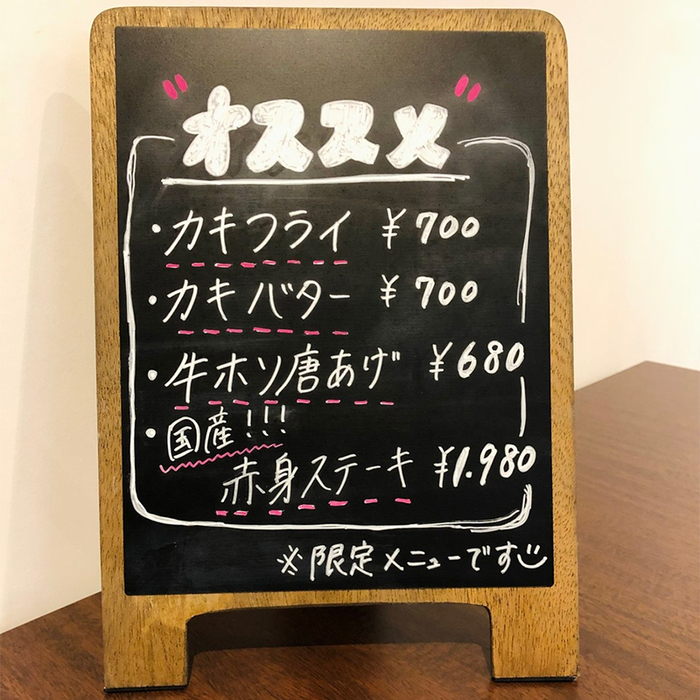 "オススメ"
・カキフライ ¥700
・カキバター ¥700
・牛ホソ唐あげ ¥680
・国産!!!
赤身ステーキ ¥1.980
※限定メニューです